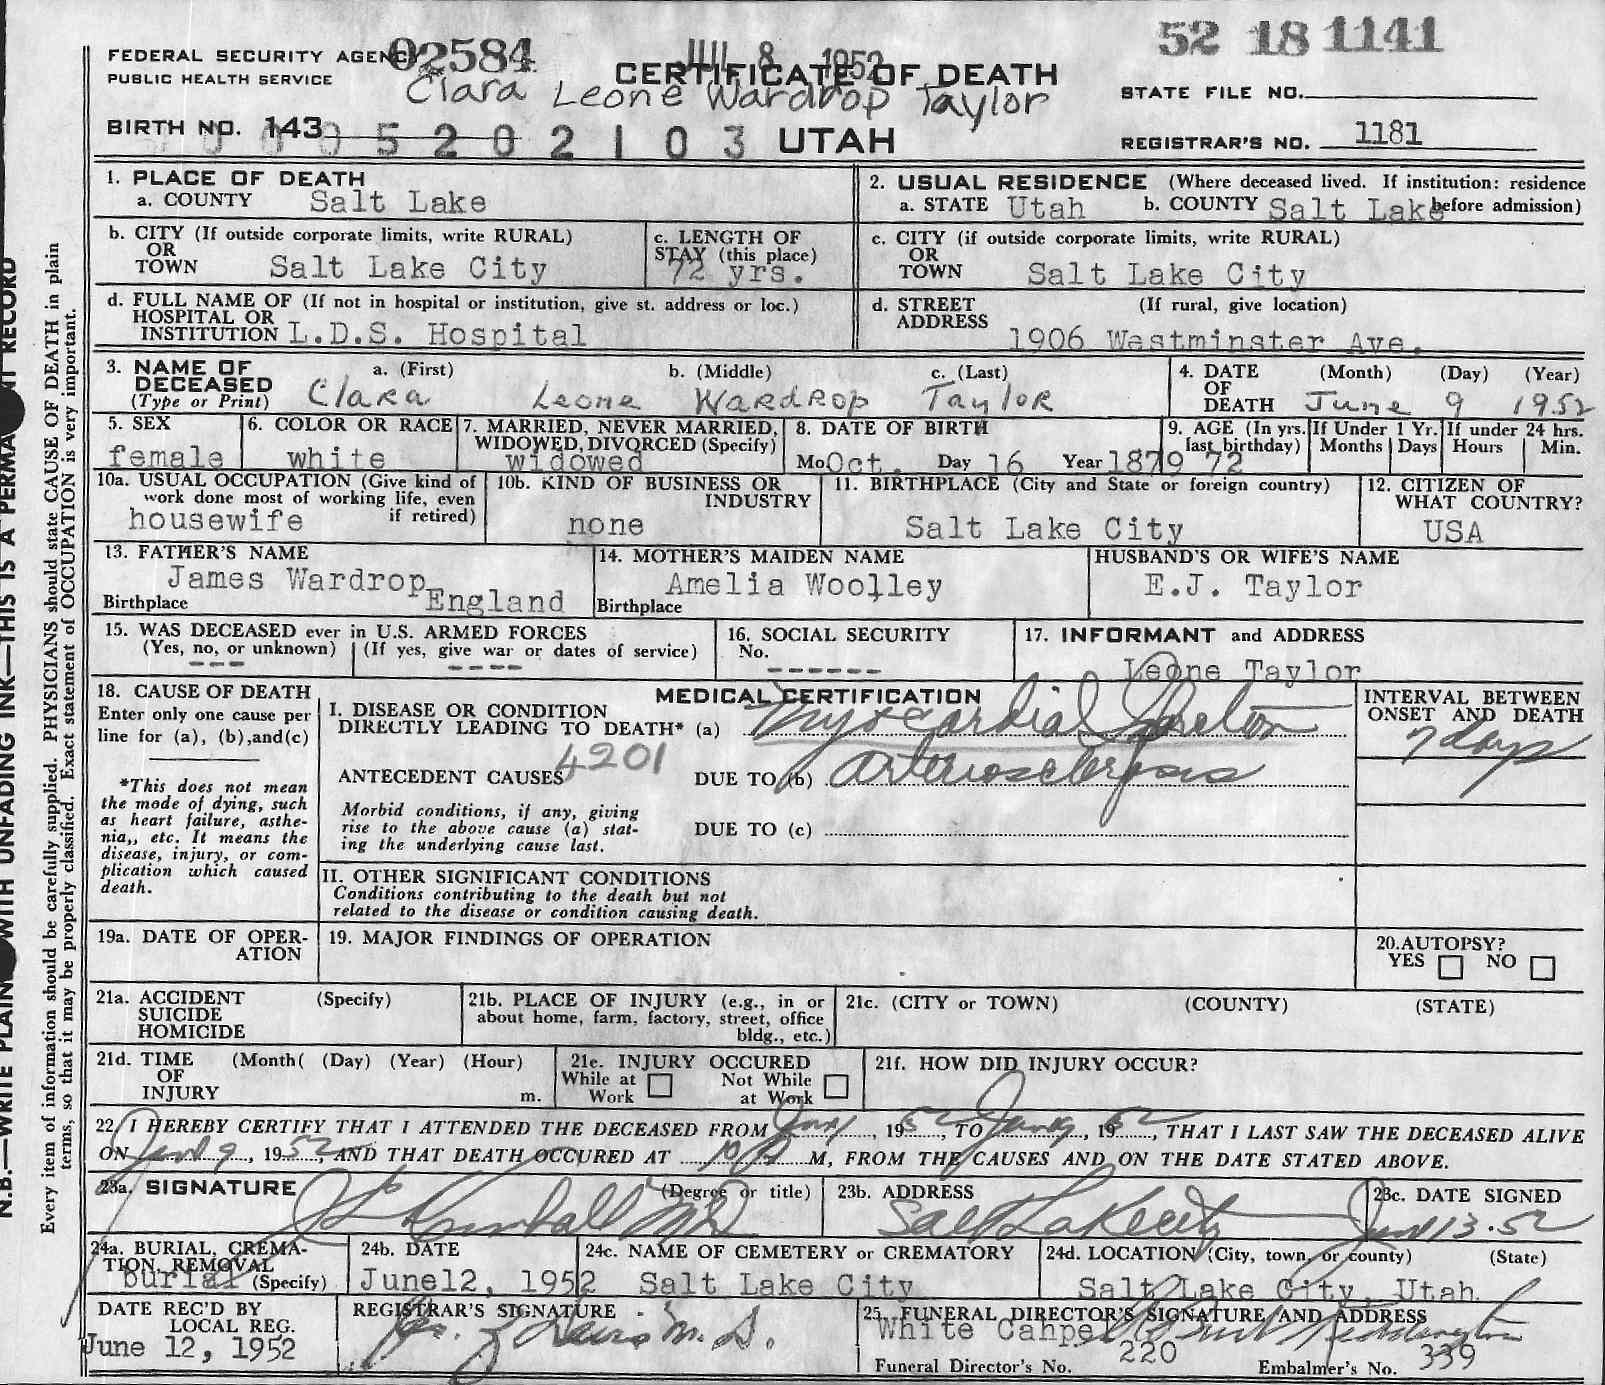 52 18 1141
FEDERAL SECURITY AGENCY 02584 JUL 8 1952
PUBLIC HEALTH SERVICE
CERTIFICATE OF DEATH
Clara Leone Wardrop Taylor
STATE FILE NO.
BIRTH NO. 143 5 2 0 2 1 0 3 UTAH
REGISTRAR'S NO. 1181
1. PLACE OF DEATH
a. COUNTY Salt Lake
2. USUAL RESIDENCE (Where deceased lived. If institution: residence before admission)
a. STATE Utah b. COUNTY Salt Lake
b. CITY (If outside corporate limits, write RURAL)
OR
TOWN Salt Lake City
c. LENGTH OF
STAY (this place)
72 yrs.
c. CITY (if outside corporate limits, write RURAL)
OR
TOWN Salt Lake City
d. FULL NAME OF (If not in hospital or institution, give st. address or loc.)
HOSPITAL OR
INSTITUTION L.D.S. Hospital
d. STREET (If rural, give location)
ADDRESS
1906 Westminster Ave.
3. NAME OF a. (First) b. (Middle) c. (Last)
DECEASED
(Type or Print) Clara Leone Wardrop Taylor
4. DATE (Month) (Day) (Year)
OF
DEATH June 9 1952
5. SEX
female
6. COLOR OR RACE
white
7. MARRIED, NEVER MARRIED,
WIDOWED, DIVORCED (Specify)
widowed
8. DATE OF BIRTH
Mo Oct. Day 16 Year 1879
9. AGE (In yrs.
last birthday)
72
If Under 1 Yr.
Months Days
If under 24 hrs.
Hours Min.
10a. USUAL OCCUPATION (Give kind of
work done most of working life, even
if retired)
housewife
10b. KIND OF BUSINESS OR
INDUSTRY
none
11. BIRTHPLACE (City and State or foreign country)
Salt Lake City
12. CITIZEN OF
WHAT COUNTRY?
USA
13. FATHER'S NAME
James Wardrop
Birthplace England
14. MOTHER'S MAIDEN NAME
Amelia Woolley
Birthplace
HUSBAND'S OR WIFE'S NAME
E.J. Taylor
15. WAS DECEASED ever in U.S. ARMED FORCES
(Yes, no, or unknown) (If yes, give war or dates of service)
--- ----
16. SOCIAL SECURITY
No.
------
17. INFORMANT and ADDRESS
Leone Taylor
18. CAUSE OF DEATH
Enter only one cause per
line for (a), (b),and(c)
*This does not mean
the mode of dying, such
as heart failure, asthe-
nia,, etc. It means the
disease, injury, or com-
plication which caused
death.
MEDICAL CERTIFICATION
I. DISEASE OR CONDITION
DIRECTLY LEADING TO DEATH* (a) Myocardial
ANTECEDENT CAUSES 4201 DUE TO (b) Arteriosclerosis
Morbid conditions, if any, giving
rise to the above cause (a) stat-
ing the underlying cause last.
DUE TO (c)
INTERVAL BETWEEN
ONSET AND DEATH
7 days
II. OTHER SIGNIFICANT CONDITIONS
Conditions contributing to the death but not
related to the disease or condition causing death.
19a. DATE OF OPER-
ATION
19. MAJOR FINDINGS OF OPERATION
20.AUTOPSY?
YES NO
21a. ACCIDENT (Specify)
SUICIDE
HOMICIDE
21b. PLACE OF INJURY (e.g., in or
about home, farm, factory, street, office
bldg., etc.)
21c. (CITY or TOWN) (COUNTY) (STATE)
21d. TIME (Month( (Day) (Year) (Hour)
OF
INJURY m.
21e. INJURY OCCURED
While at Work Not While at Work
21f. HOW DID INJURY OCCUR?
22. I HEREBY CERTIFY THAT I ATTENDED THE DECEASED FROM , 1952, TO , 1952, THAT I LAST SAW THE DECEASED ALIVE
ON June 9, 1952, AND THAT DEATH OCCURED AT M, FROM THE CAUSES AND ON THE DATE STATED ABOVE.
23a. SIGNATURE (Degree or title)
MD
23b. ADDRESS
Salt Lake City
23c. DATE SIGNED
June 13-52
24a. BURIAL, CREMA-
TION, REMOVAL
burial (Specify)
24b. DATE
June12, 1952
24c. NAME OF CEMETERY or CREMATORY
Salt Lake City
24d. LOCATION (City, town, or county) (State)
Salt Lake City, Utah
DATE REC'D BY
LOCAL REG.
June 12, 1952
REGISTRAR'S SIGNATURE
M.D.
25. FUNERAL DIRECTOR'S SIGNATURE AND ADDRESS
White Cahpel
Funeral Director's No. 220 Embalmer's No. 339
N.B.—WRITE PLAIN WITH UNFADING INK—THIS IS A PERMA NT RECORD
Every item of information should be carefully supplied. PHYSICIANS should state CAUSE OF DEATH in plain
terms, so that it may be properly classified. Exact statement of OCCUPATION is very important.